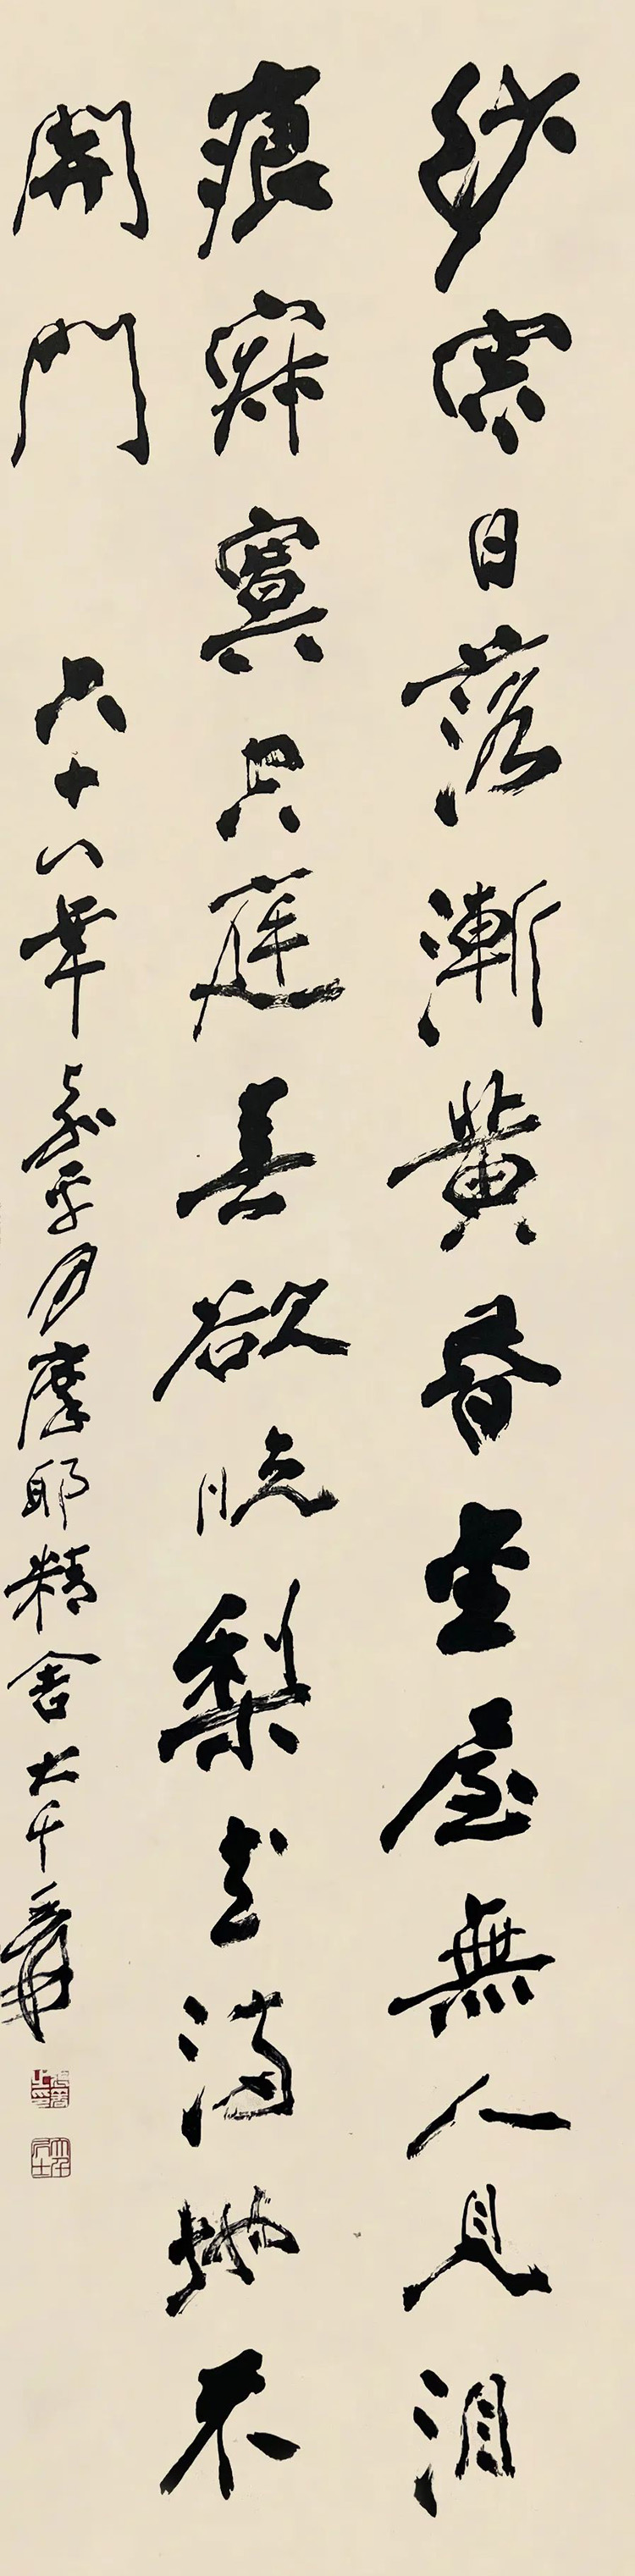 紗窗日落漸黃昏金屋無人見泪
痕寂寞空庭春欲晚梨花滿地不
開門
六十八年嘉平月摩耶精舍大千爰
張爰之印
大千居士